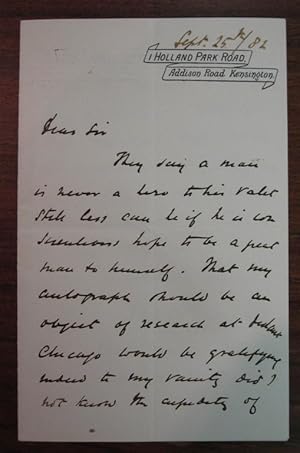 Sept. 25th/82
1 HOLLAND PARK ROAD.
Addison Road. Kensington.
Dear Sir
They say a man
is never a hero to his valet
still less can he if he is con
scientious hope to be a great
man to himself. That my
autograph should be an
object of research at distant
Chicago would be gratifying
indeed to my vanity did I
not know the cupidity of